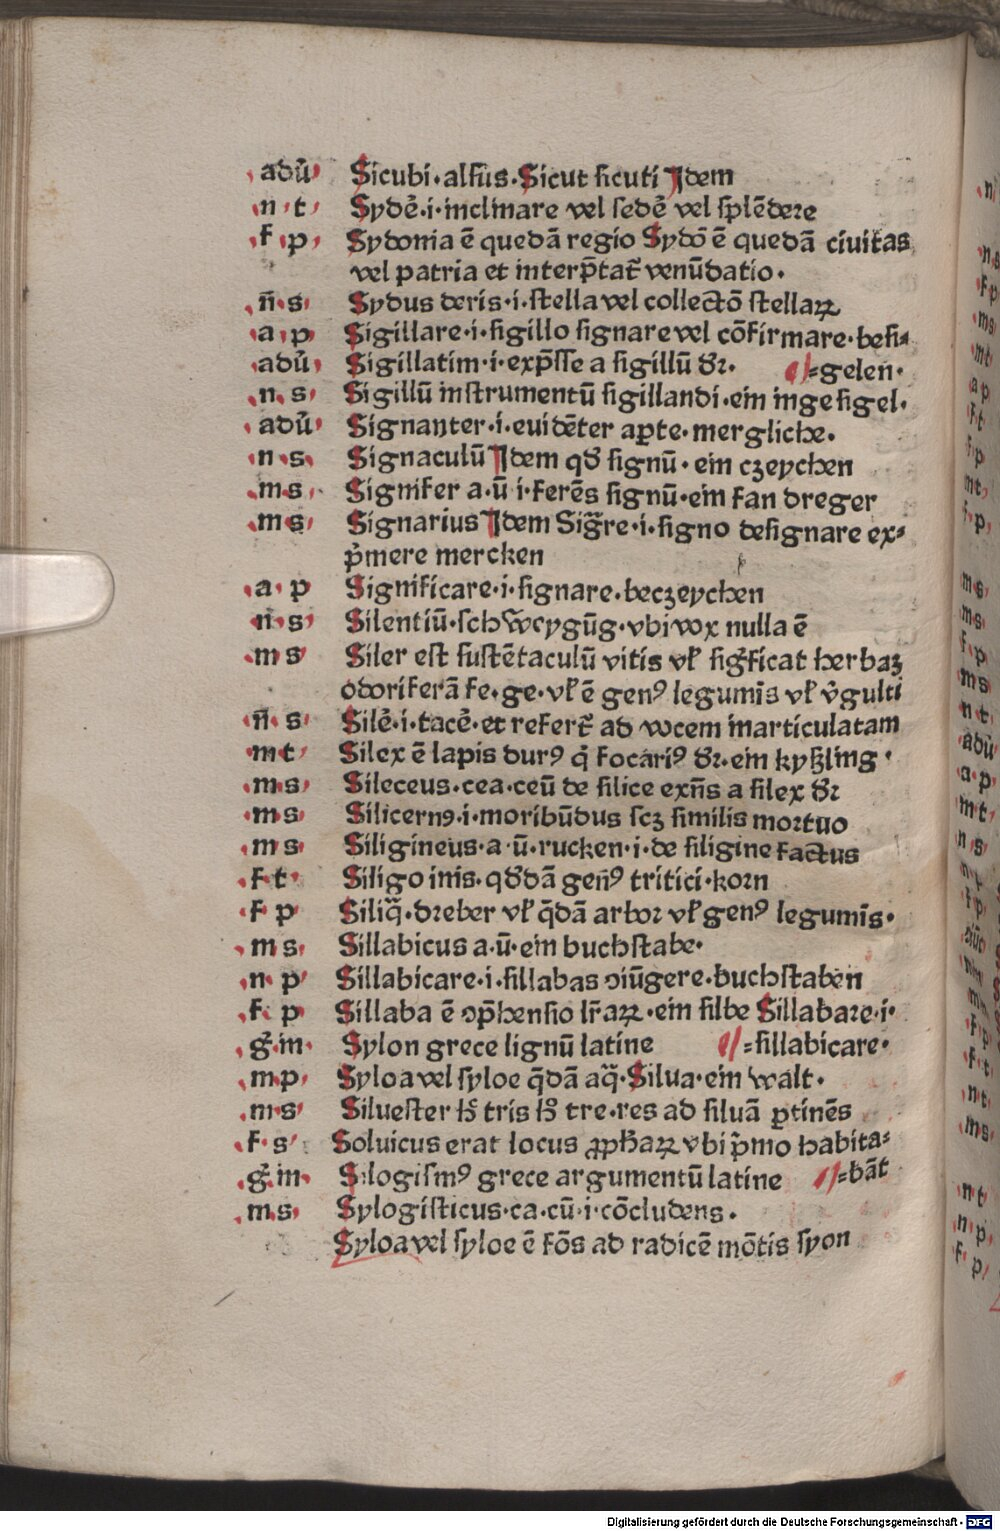 adũ Sicubi·alſũs·Sicut ſicuti Jdem
n·t Sydẽ·i·inclinare vel ſedẽ vel ſplẽdeꝛe
f·p Sydonia ẽ quedã regio Sydõ ẽ quedã ciuitas
vel patria et interp̃tat᷑ venũdatio·
n̄·s Sydus deris·i·ſtella vel collectõ ſtellaꝝ
a·p Sigillare·i·ſigillo ſignare vel cõfirmare·beſi⸗
adũ Sigillatim·i·exp̃ſſe a ſigillũ dr̃· ⸗gelen·
n·s Sigillũ inſtrumentũ ſigillandi·ein ingeſigel·
adũ Signanter·i·euidẽter aꝑte·mergliche·
n·s Signaculũ Jdem qd̃ ſignũ·ein czeychen
m·s Signifer a·ũ·i·ferẽs ſignũ·ein fan dreger
m·s Signarius Jdem Sig̃re·i·ſigno deſignare ex⸗
p̃mere mercken
a·p Significare·i·ſignare·beczeychen
n·s Silentiũ·ſchweygũg·vbi vox nulla ẽ
m·s Siler eſt ſuſtẽtaculũ vitis vł ſig̃ficat herbaꝫ
odoriferã fe·ge·vł ẽ genꝰ legumĩs vł v̓gulti
n̄·s Silẽ·i·tacẽ·et refert᷑ ad vocem inarticulatam
m·t Silex ẽ lapis durꝰ q̇ focariꝰ dr̃·ein kyßling·
m·s Sileceus·cea·ceũ de ſilice exñs a ſilex dr̃
m·s Silicernꝰ·i·moribũdus ſcꝫ ſimilis moꝛtuo
m·s Siligineus·a·ũ·rucken·i·de ſiligine factus
f·t Siligo inis·qd̃dã geñꝰ tritici·koꝛn
f·p Siliq̃·dꝛeber vł q̃dã arboꝛ vł genꝰ legumĩs·
m·s Sillabicus a·ũ·ein buchſtabe·
n·p Sillabicare·i·ſillabas ↄiũgere·buchſtaben
f·p Sillaba ẽ ↄp̃henſio lr̃aꝝ·ein ſilbe Sillabaꝛe·i·
g̃·m· Sylon grece lignũ latine ⸗ſillabicare·
m·p Syloa vel ſyloe q̃dã aq̃·Silua·ein walt·
m·s Silueſter hˢ tris hˢ tre·res ad ſiluã ꝑtinẽs
f·s Soluicus erat locus ꝓph̃aꝝ vbi p̃mo habita⸗
g̃·m· Silogiſmꝰ grece argumentũ latine ⸗bãt
m·s Sylogiſticus·ca·cũ·i·cõcludens·
Syloa vel ſyloe ẽ fõs ad radicẽ mõtis ſyon
Digitalisierung gefördert durch die Deutsche Forschungsgemeinschaft - DFG